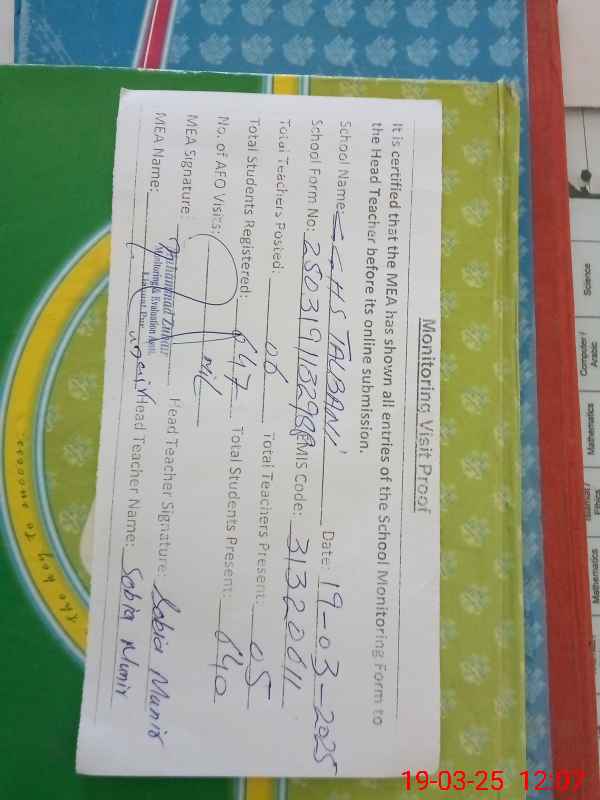 Monitoring Visit Proof
It is certified that the MEA has shown all entries of the School Monitoring Form to
the Head Teacher before its online submission.
School Name: GGHS TALBANI Date: 19-03-2025
School Form No: EMIS Code: 31320011
Total Teachers Posted: 06 Total Teachers Present: 05
Total Students Registered: 647 Total Students Present: 640
No. of AFO Visits: nil
MEA Signature: Head Teacher Signature: Sobia Munir
Muhammad
Monitoring & Evaluation Asstt.
MEA Name: Head Teacher Name: Sobia Munir
Science
Computer /
Arabic
Mathematics
Ethics
Mathematics
19-03-25 12:07